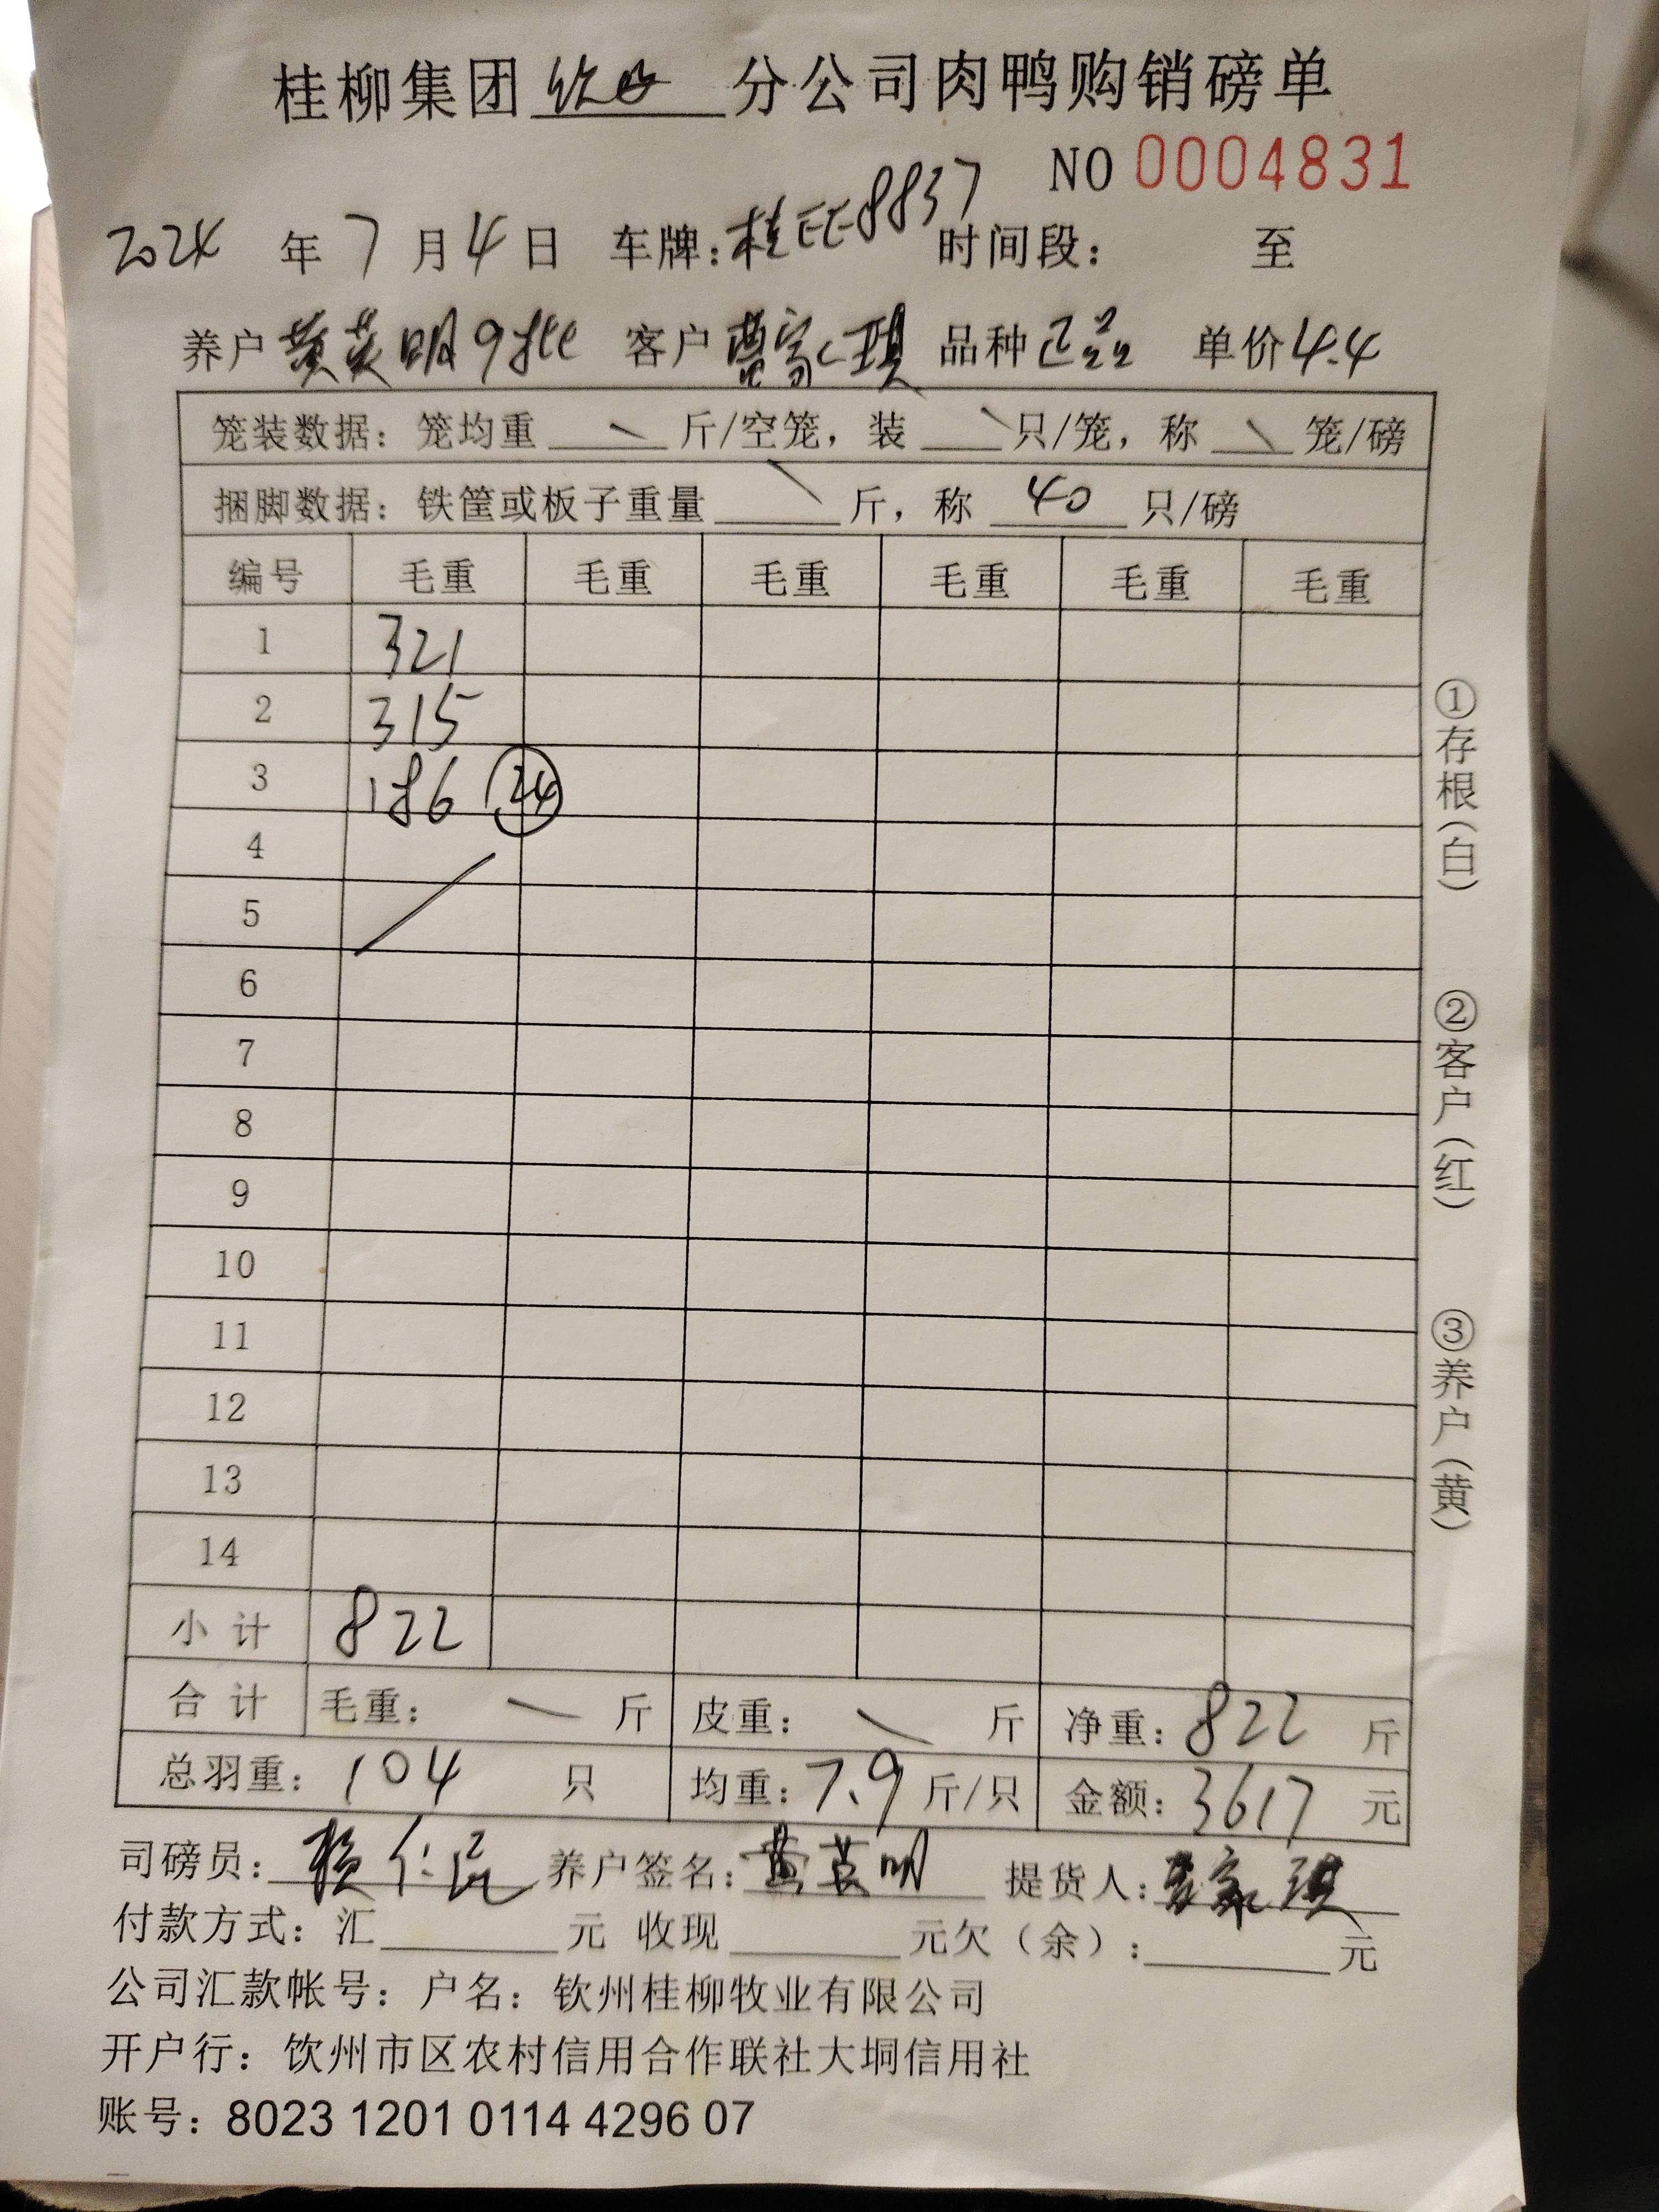 桂柳集团 钦州 分公司肉鸭购销磅单
NO 0004831
2024 年 7 月 4 日 车牌：桂EE8837 时间段： 至
养户 黄英明9批 客户 曹家琪 品种 单价 4.4
笼装数据：笼均重 斤/空笼，装 只/笼，称 笼/磅
捆脚数据：铁筐或板子重量 斤，称 40 只/磅
编号 毛重 毛重 毛重 毛重 毛重 毛重
1 321
2 315
3 186 24
4
5
6
7
8
9
10
11
12
13
14
小 计 822
合 计 毛重： 斤 皮重： 斤 净重：822 斤
总羽重：104 只 均重：7.9 斤/只 金额：3617 元
司磅员： 养户签名：黄英明 提货人：曹家琪
付款方式：汇 元 收现 元欠（余）： 元
公司汇款帐号：户名：钦州桂柳牧业有限公司
开户行：饮州市区农村信用合作联社大垌信用社
账号：8023 1201 0114 4296 07
①存根（白）
②客户（红）
③养户（黄）